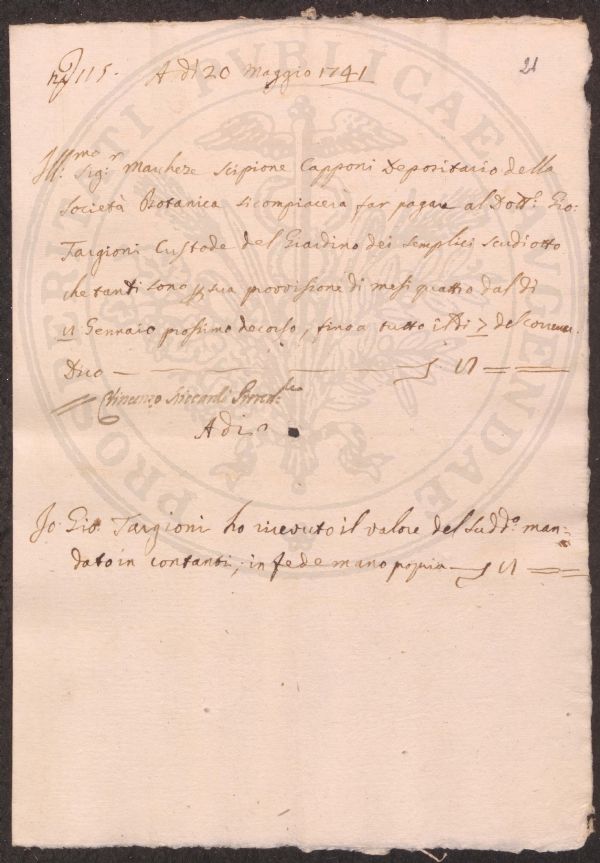 nº 115. A dì 20 Maggio 1741
21
Ill:mo Sig:r Marchese Scipione Capponi Depositario della
Società Botanica si compiacerà far pagare al Dott:e Gio:
Targioni Custode del Giardino dei Semplici scudi otto
che tanti sono p sua provvisione di mesi quattro dal dì
Gennaio prossimo decorso, fino a tutto il dì 7 del corrente.
Dico
Vincenzo
A dì Dº
Io Gio: Targioni ho ricevuto il valore del Sudd:o man=
dato in contanti, in fede mano propria
PROSPERITATI PVBLICAE AVGENDAE